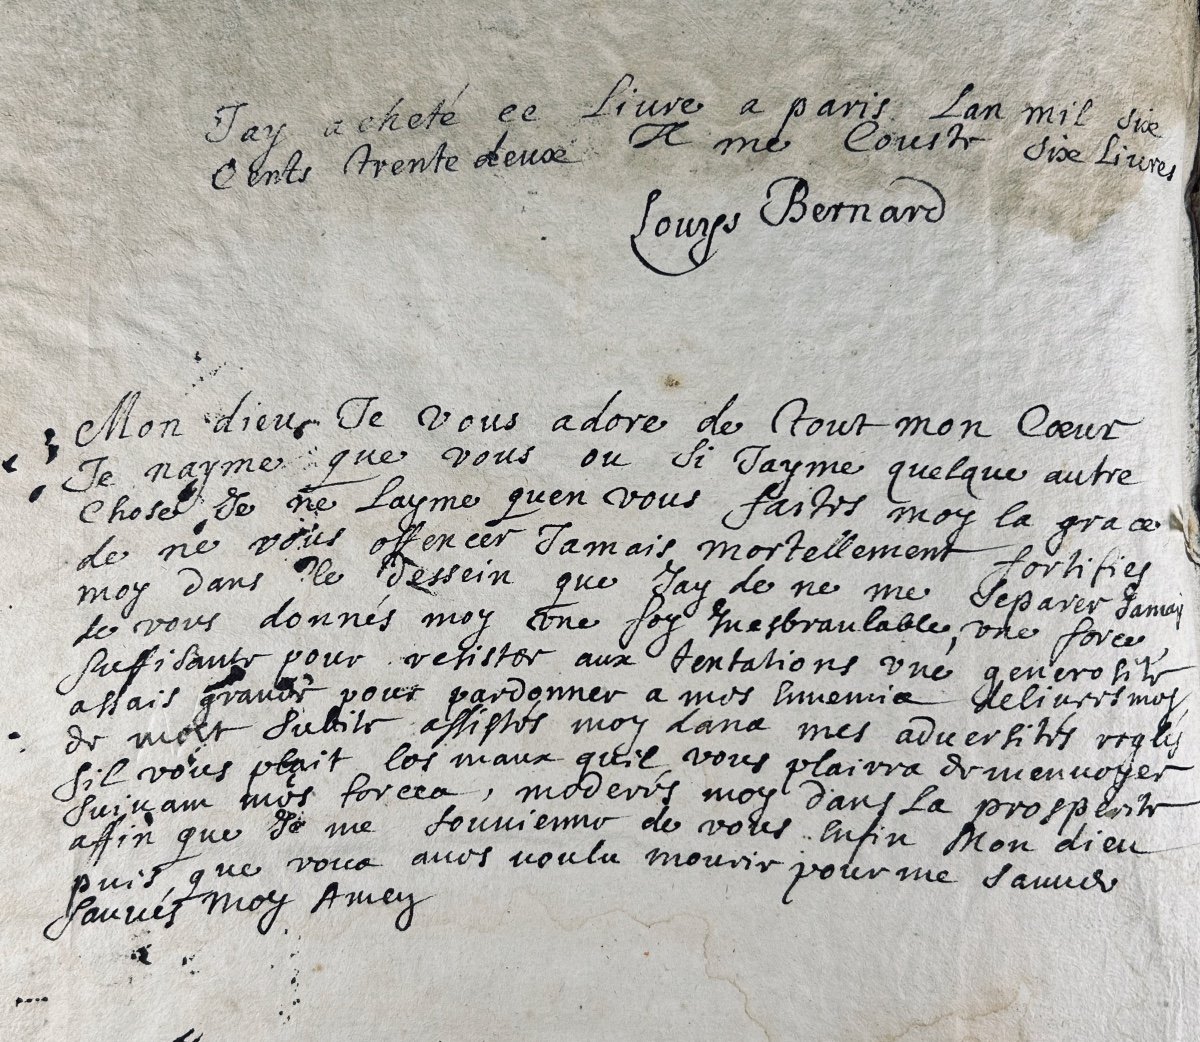 Jay acheté ce Liure a paris Lan mil six
Cents trente deux Il me Couste six Liures
Louys Bernard
Mon dieu Je vous adore de tout mon Cœur
Je nayme que vous ou si Jayme quelque autre
chose Je ne Layme quen vous faites moy la grace
de ne vous offencer Jamais mortellement fortifies
moy dans le dessein que Jay de ne me separer Jamais
de vous donnés moy vne foy Inesbranlable, vne force
suffisante pour resister aux tentations vne generosité
assais grande pour pardonner a mes Ennemix deliurés moy
de mort subite assistés moy dans mes aduersités reglés
sil vous plait les maux quil vous plairra de menuoyer
suiuant mes forces, moderés moy dans la prosperité
affin que Je me souuienne de vous Enfin Mon dieu
puis que vous aues voulu mourir pour me sauuer
sauués moy Amen